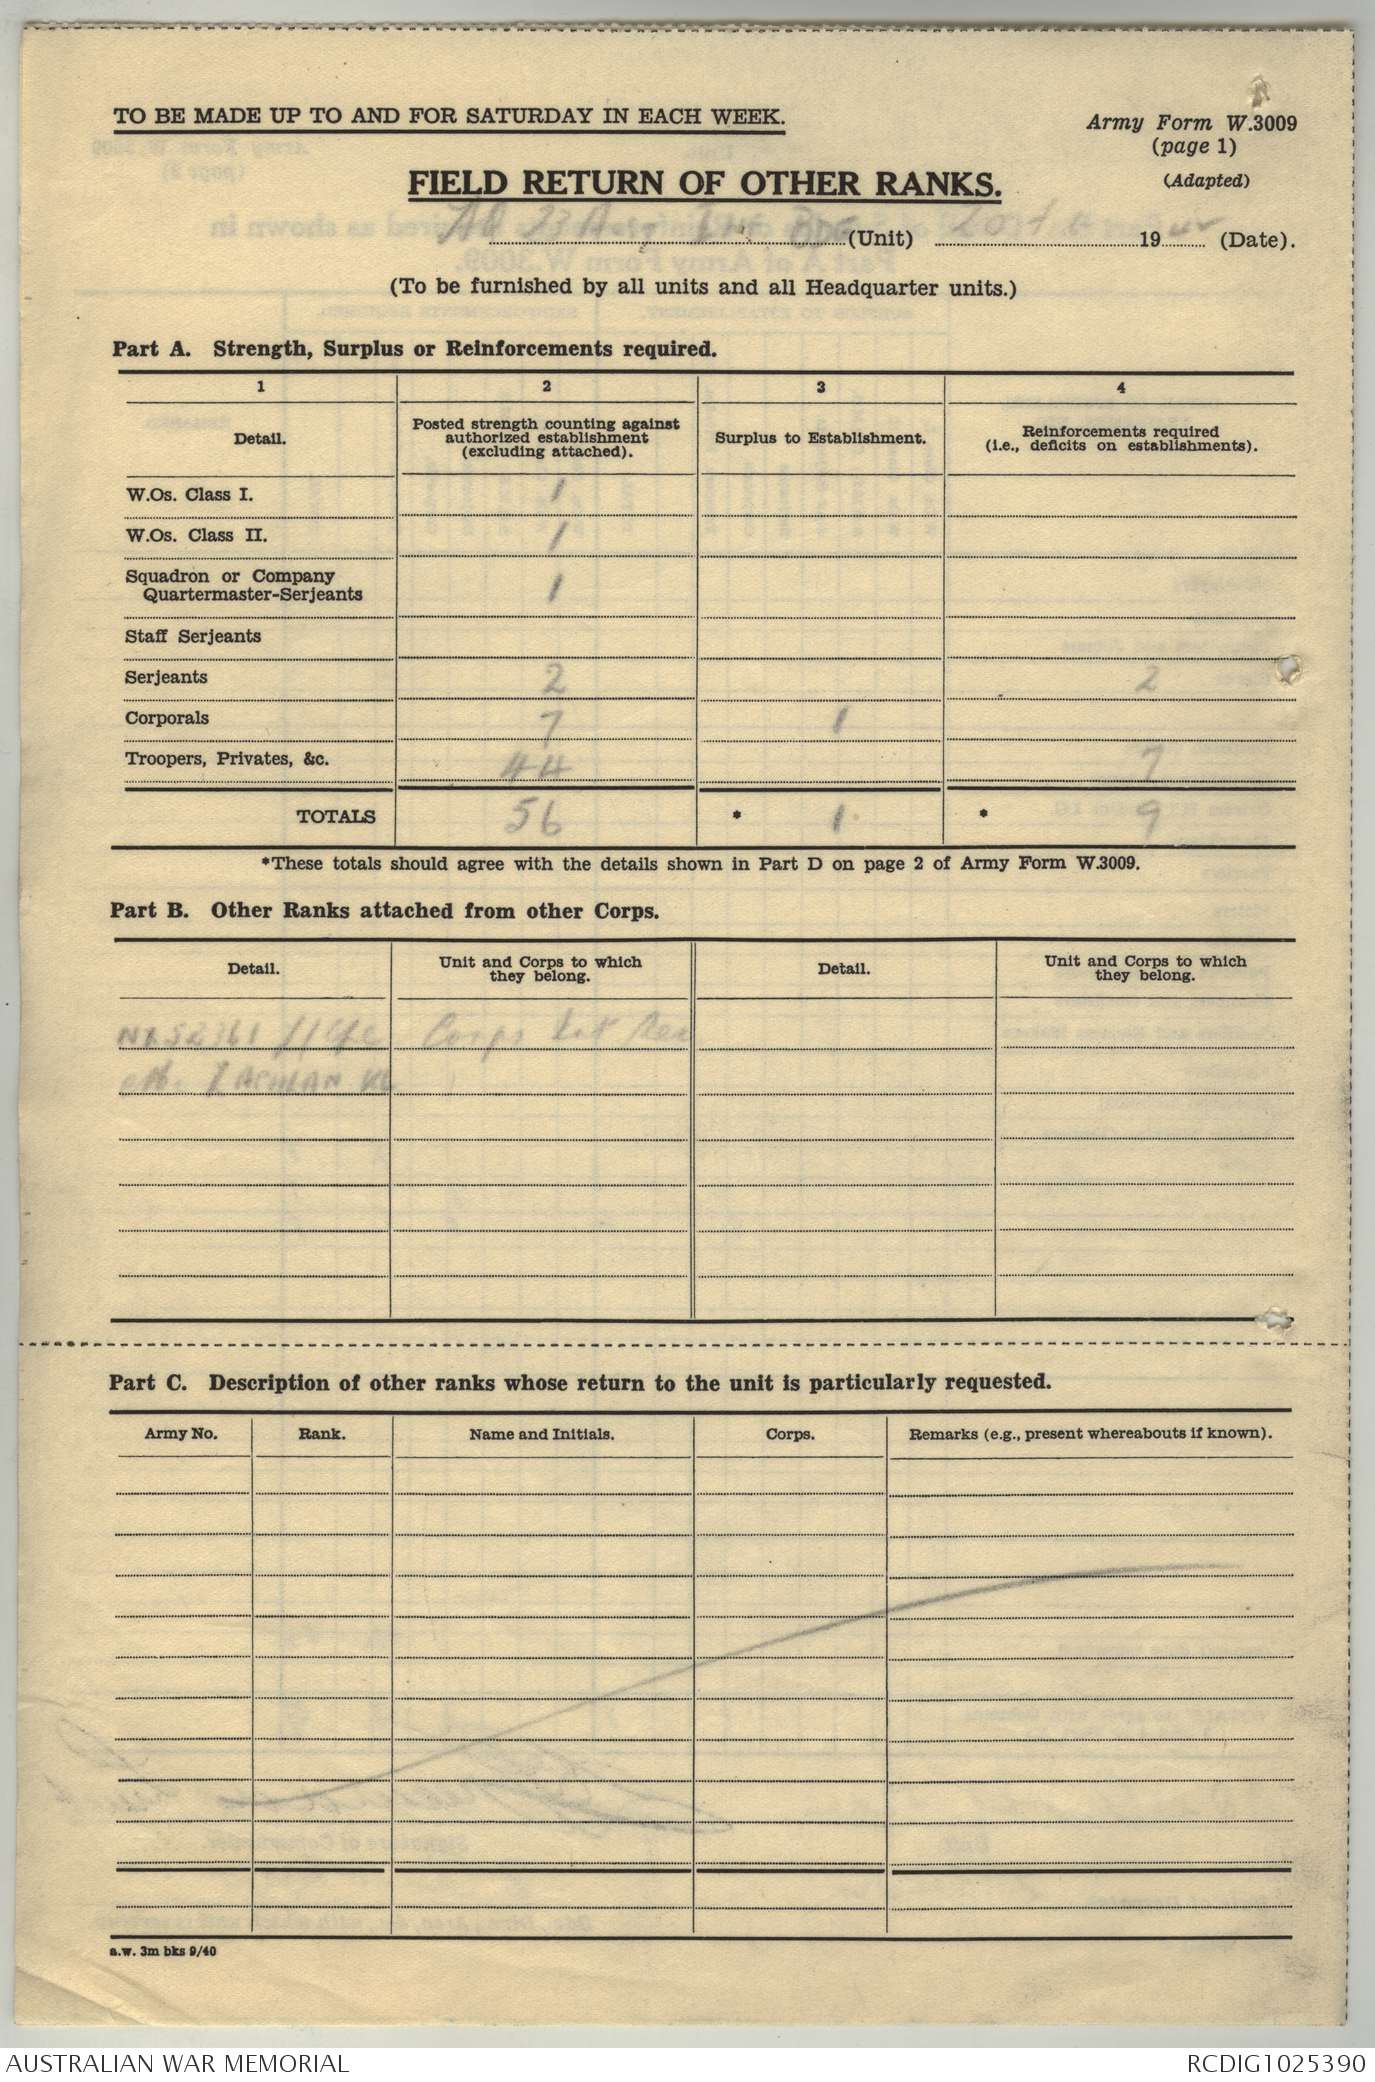 TO BE MADE UP TO AND FOR SATURDAY IN EACH WEEK.
Army Form W.3009
(page 1)
(Adapted)
FIELD RETURN OF OTHER RANKS.
HQ 23 Aust Inf Bde (Unit) 19 42 (Date).
(To be furnished by all units and all Headquarter units.)
Part A. Strength, Surplus or Reinforcements required.
1 2 3 4
Detail. Posted strength counting against authorized establishment (excluding attached). Surplus to Establishment. Reinforcements required (i.e., deficits on establishments).
W.Os. Class I. 1
W.Os. Class II. 1
Squadron or Company
Quartermaster-Serjeants 1
Staff Serjeants
Serjeants 2 2
Corporals 7 1
Troopers, Privates, &c. 44 7
TOTALS 56 * 1 * 9
*These totals should agree with the details shown in Part D on page 2 of Army Form W.3009.
Part B. Other Ranks attached from other Corps.
Detail. Unit and Corps to which they belong. Detail. Unit and Corps to which they belong.
Corps
Part C. Description of other ranks whose return to the unit is particularly requested.
Army No. Rank. Name and Initials. Corps. Remarks (e.g., present whereabouts if known).
a.w. 3m bks 9/40
AUSTRALIAN WAR MEMORIAL
RCDIG1025390